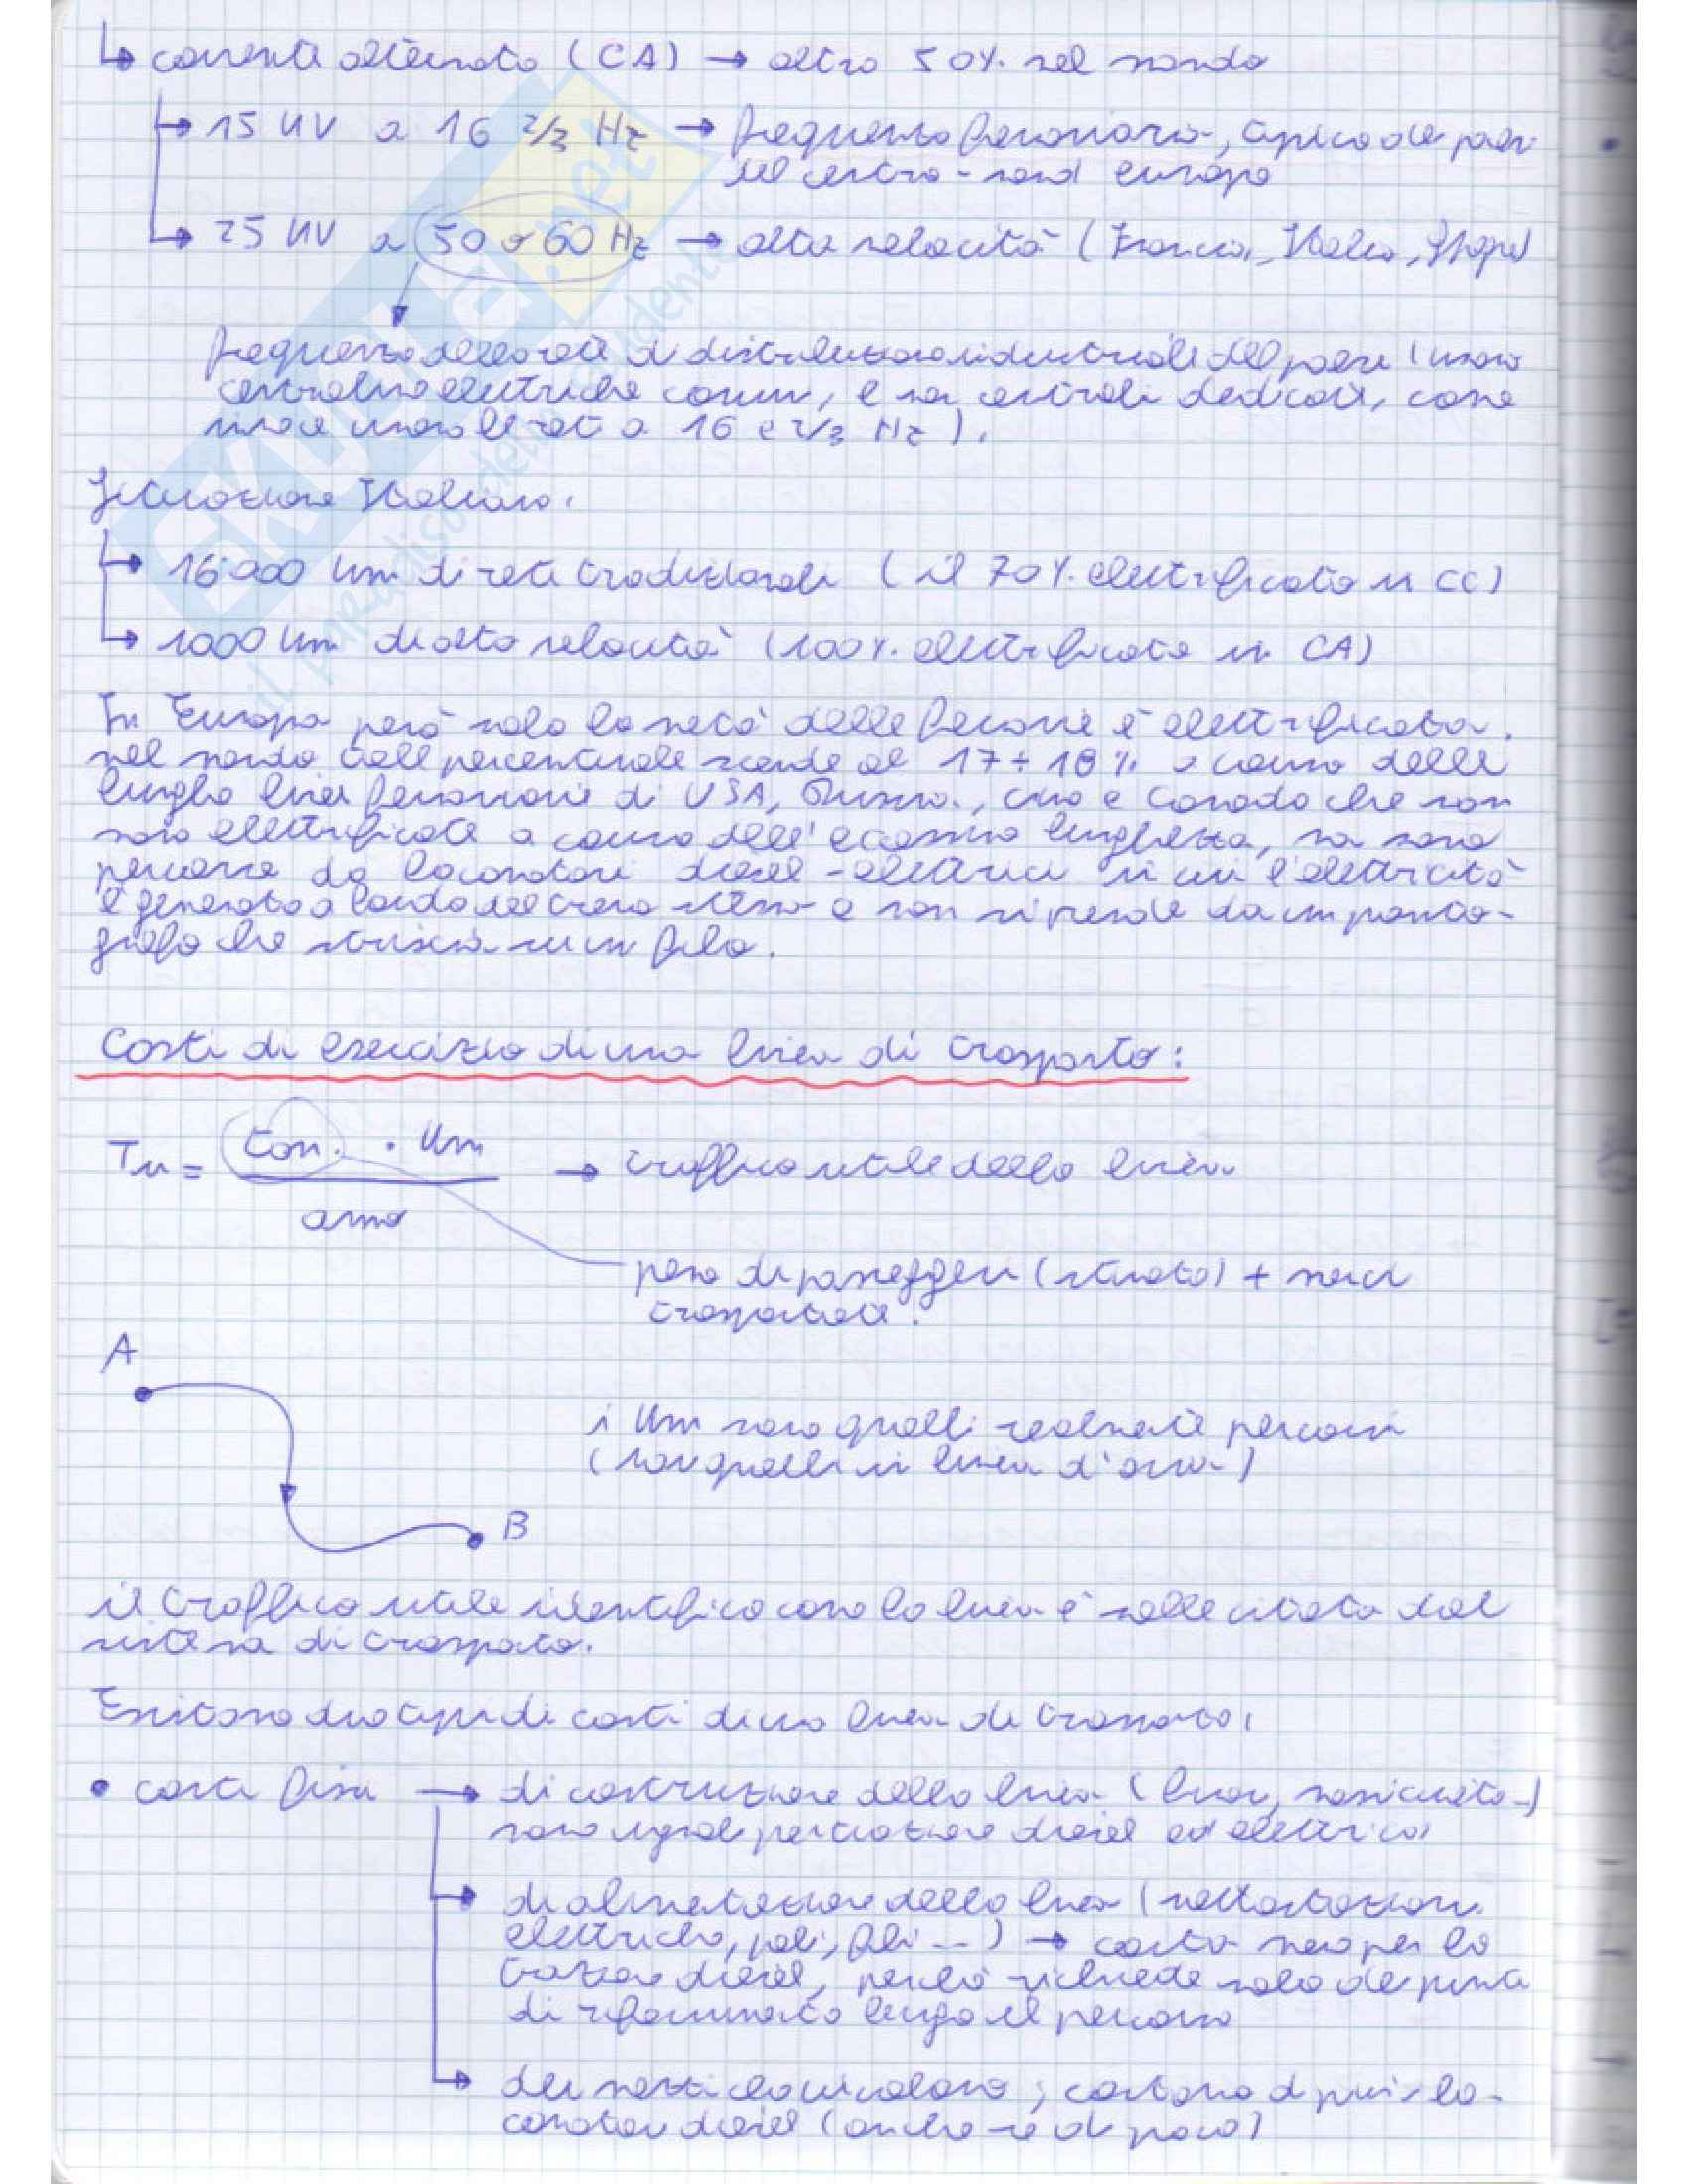 ↳ corrente alternata (CA) → altro 50% nel mondo
↳ 15 kV a 16 2/3 Hz → frequenza ferroviaria, tipica dei paesi
del centro-nord europa
↳ 25 kV a 50 o 60 Hz → alta velocità (Francia, Italia, Spagna)
frequenza delle reti di distribuzione industriale del paese (usano
centraline elettriche comuni, e non centrali dedicate, come
invece usano le reti a 16 e 2/3 Hz).
Situazione Italiana:
↳ 16'000 km di reti tradizionali (il 70% elettrificato in CC)
↳ 1000 km di alta velocità (100% elettrificata in CA)
In Europa però solo la metà delle ferrovie è elettrificata.
nel mondo tale percentuale scende al 17÷18% a causa delle
lunghe linee ferroviarie di USA, Russia, Cina e Canada che non
sono elettrificate a causa dell'eccessiva lunghezza, ma sono
percorse da locomotori diesel-elettrici in cui l'elettricità
è generata a bordo del treno stesso e non si prende da un panto-
grafo che striscia su un filo.
Costi di esercizio di una linea di trasporto:
Tu = ton. · km → traffico utile della linea
anno
peso di passeggeri (stimato) + merci
trasportate.
A
i km sono quelli realmente percorsi
(non quelli in linea d'aria)
B
il traffico utile identifica come la linea è sollecitata dal
sistema di trasporto.
Esistono due tipi di costi di una linea di trasporto:
• costi fissi → di costruzione della linea (binari, massicciata..)
sono uguali per trazione diesel ed elettrica
→ di alimentazione della linea (sottostazioni
elettriche, pali, fili...) → costa meno per la
trazione diesel, perché richiede solo dei punti
di rifornimento lungo il percorso
→ dei mezzi che circolano; costano di più i lo-
comotori diesel (anche se di poco)
SKUOLA.net
il paradiso dello studente